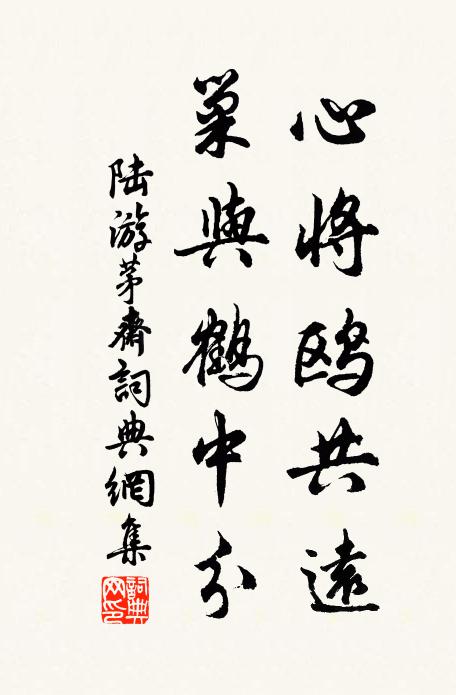 心將鷗共遠
巢與鶴中分
陆游茅齋詞典網集
詞典网印